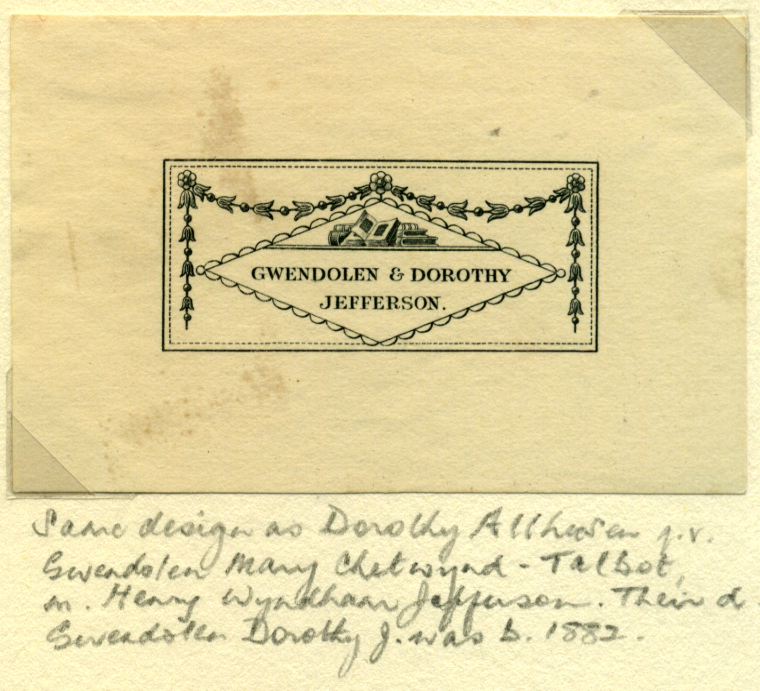 GWENDOLEN & DOROTHY
JEFFERSON.
Same design as Dorothy Allhusen q.v.
Gwendolen Mary Chetwynd - Talbot,
m. Henry Wyndham Jefferson. Their d.
Gwendolen Dorothy J. was b. 1882.